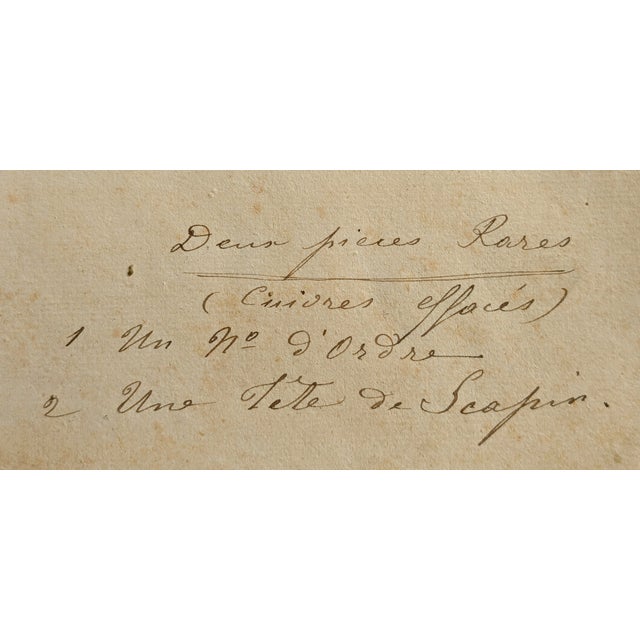 Deux pieces Rares
(Cuivres effacés)
1 Un No d'Ordre
2 Une Tete de Scapin.